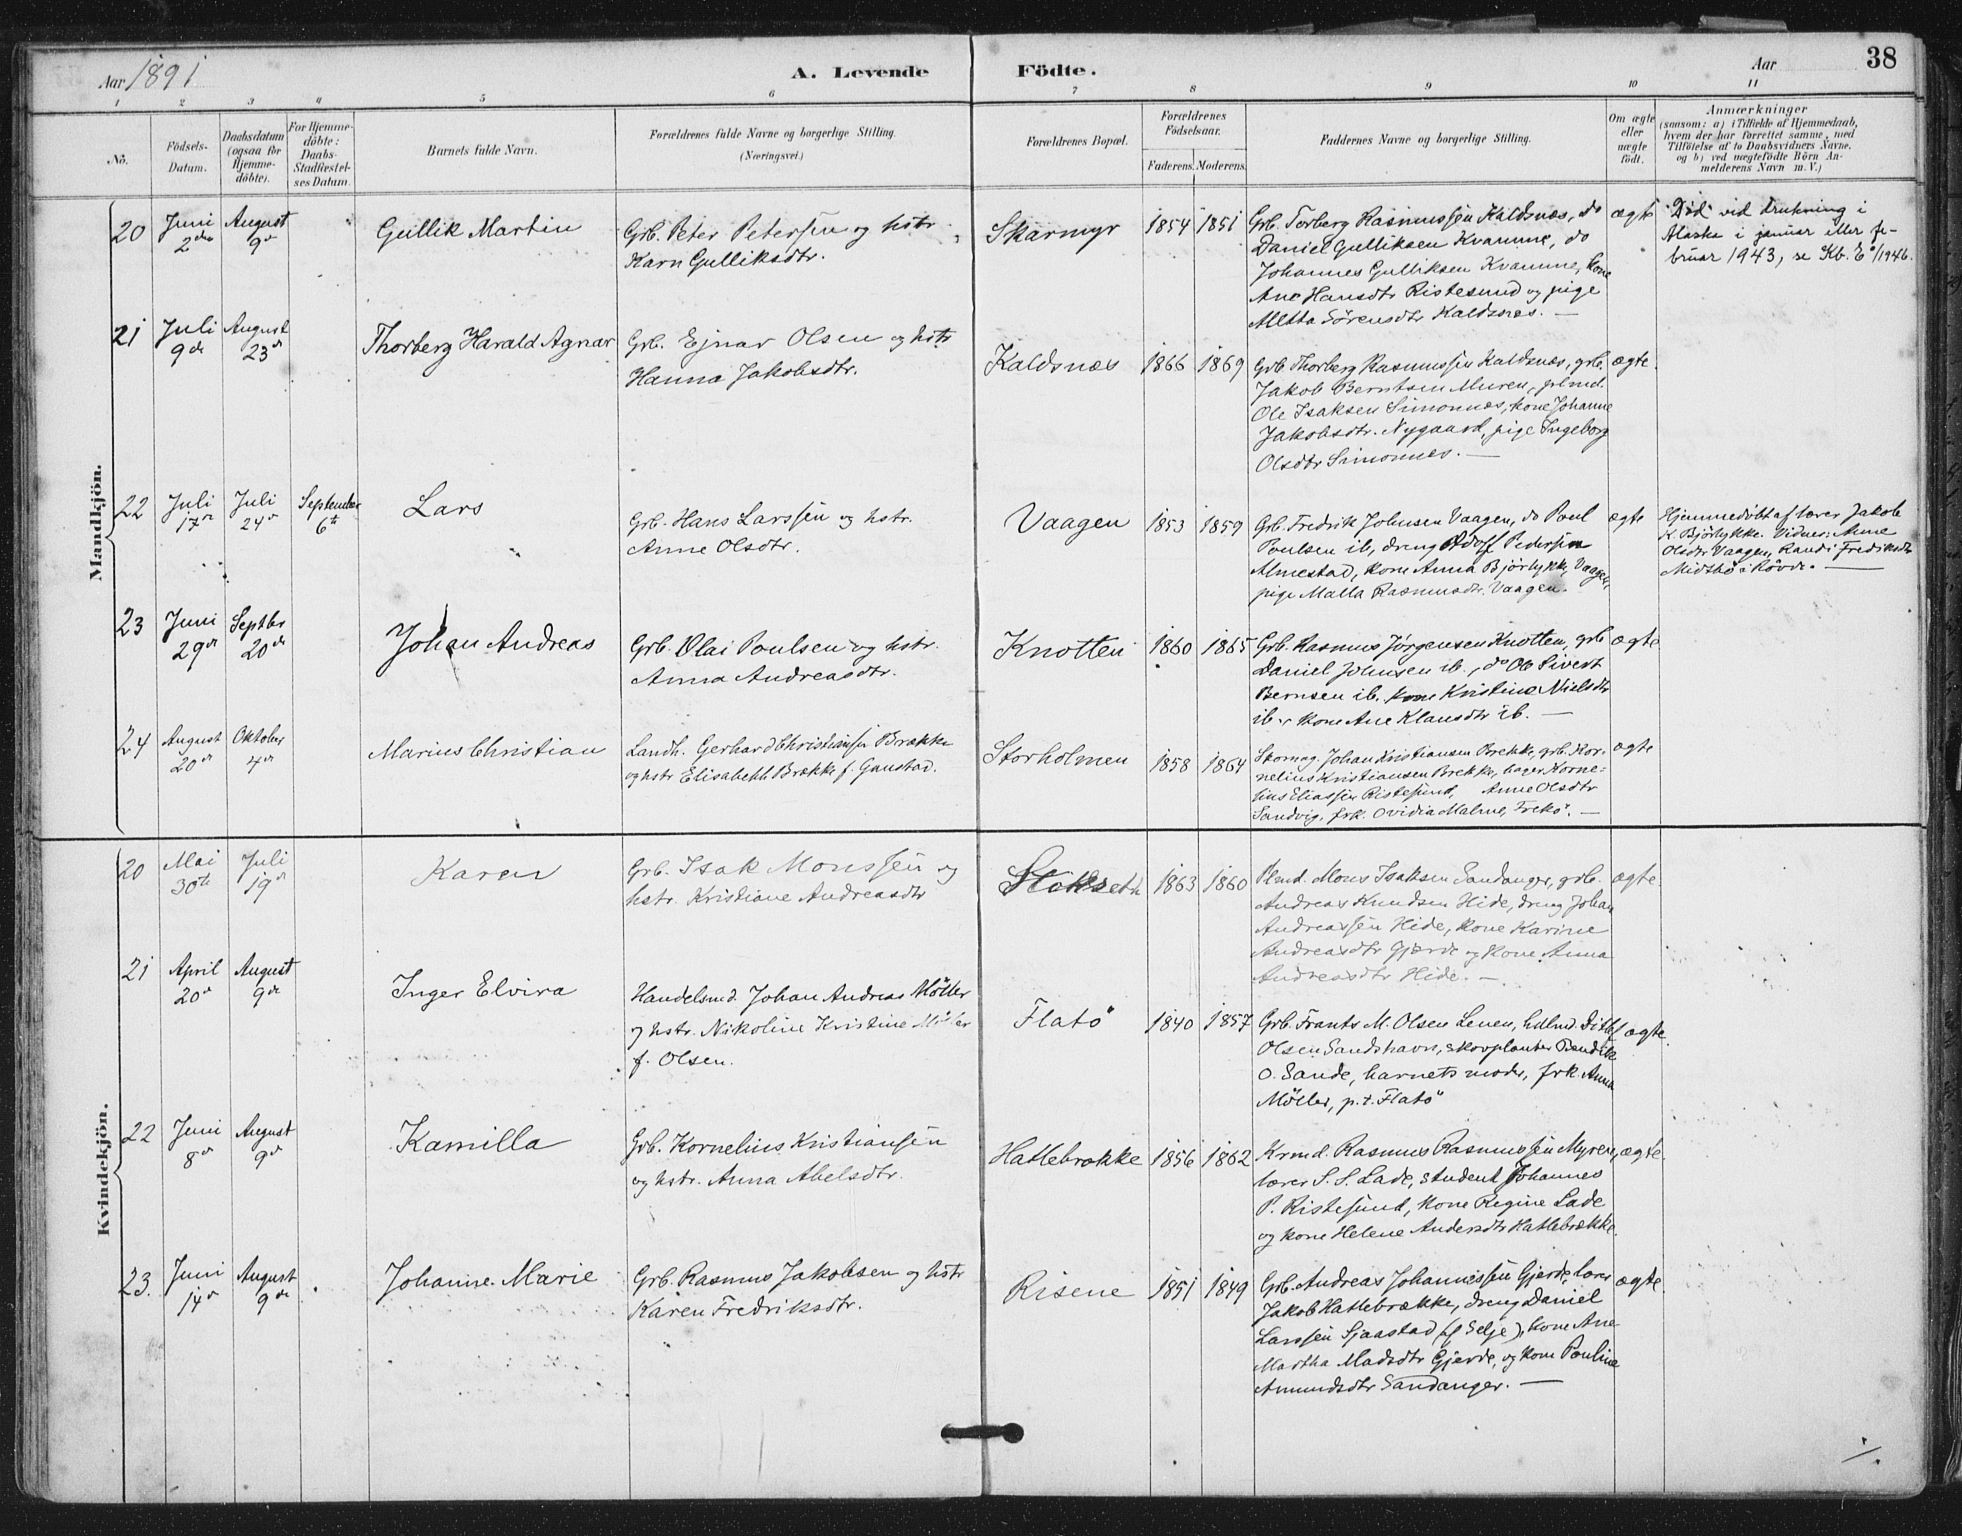 Aar 1891
A. Levende Födte.
Aar
38
1 2 3 4 5 6 7 8 9 10 11
No.
Födsels-Datum.
Daabsdatum (ogsaa for Hjemme-döbte).
For Hjemme-döbte: Daabs-Stadfæstel-ses Datum
Barnets fulde Navn.
Forældrenes fulde Navne og borgerlige Stilling.
(Næringsvei.)
Forældrenes Bopæl.
Forældrenes Födselsaar.
Faderens. Moderens.
Faddernes Navne og borgerlige Stilling.
Om ægte eller uægte födt.
Anmærkninger
(saasom: a) i Tilfælde af Hjemmedaab,
hvem der har forrettet samme, med
Tilföielse af to Daabsvidners Navne.
og b) ved uægtefödte Börn An-
melderens Navn m. V.)
Mandkjön.
20 Juni 2den August 9de Gullik Martin
Grb. Peter Petersen og hstr.
Karn Gulliksdtr.
Skarmyr 1854 1851
Grb. Torberg Rasmussen Kaldsnæs, do
Daniel Gulliksen Kvamme, do
Johannes Gulliksen Kvamme, kone
Ane Hansdtr Ristesund og pige
Sörensdtr Kaldsnæs. —
ægte
Död ved drukning i
Alaska i januar eller fe-
bruar 1943, se Kb. 1946.
21 Juli 9de August 23de Thorberg Harald Agnar
Grb. Ejnar Olsen og hstr
Hanna Jakobsdtr.
Kaldsnæs 1866 1869
Grb Thorberg Rasmussen Kaldsnæs, grb.
Jakob Berntsen Muren,
Ole Isaksen Simonnæs, kone Johanne
Jakobsdtr. Nygaard, pige Ingeborg
Olsdtr Simonnæs. —
ægte.
22 Juli 17de Juli 24de September 6te Lars
Grb. Hans Larssen og hstr.
Anne Olsdtr.
Vaagen 1853 1859
Grb. Fredrik Johnsen Vaagen, do Poul
Poulsen ib, dreng Adolf Pedersen
Almestad, kone Anna Björlykke, Vaagen,
pige Malla Rasmusdtr. Vaagen.
ægte
Hjemmedöbt af lærer Jakob
K. Björlykke. Vidner: Anne
Olsdtr Vaagen, Randi Fredriksdtr
Midtbö i Rövde. —
23 Juni 29de Septbr 20de Johan Andreas
Grb. Olai Poulsen og hstr.
Anna Andreasdtr.
Knotten 1860 1865
Grb. Rasmus Jørgensen Knotten, grb
Daniel Johnsen ib., do Ole Sivert
Bernsen ib. kone Kristine Nielsdtr
ib., kone Ane Klausdtr ib. —
ægte
24 August 20de Oktober 4de Marius Christian
Landh. Gerhard Christiansen Brække
og hstr Elisabeth Brække f. Gunstad.
Storholmen 1858 1864
Skomag. Johan Kristiansen Brekke, grb. Kor-
nelius Kristiansen Brekke, bager Korne-
lius Eliassen Ristesund, Anne Olsdtr
Sandvig, frk. Ovidia Malme, Frekö. —
ægte
Kvindekjön.
20 Mai 30te Juli 19de Karen
Grb. Isak Monssen og
hstr. Kristiane Andreasdtr
Stokseth 1863 1860
Plmd. Mons Isaksen Sandanger, grb.
Andreas Knudsen Hide, dreng Johan
Andreassen Hide, kone Karine
Andreasdtr Gjærde og kone Anna
Andreasdtr Hide. —
ægte.
21 April 20de August 9de Inger Elvira
Handelsmd. Johan Andreas Möller
og hstr. Nikoline Kristine Möller
f. Olsen.
Flatö 1840 1857
Grb. Frants M. Olsen Leuen, hdlmd. Ditlef
Olsen Sandshavn, skovplanter Bendik
O. Sande, barnets moder, frk. Anna
Möller, p. t. Flatö
ægte.
22 Juni 8de August 9de Kamilla
Grb. Kornelius Kristiansen
og hstr. Anna Abelsdtr.
Hatlebrække 1856 1862
Krmd. Rasmus Rasmussen Myren,
lærer S. S. Lade, student Johannes
P. Ristesund, kone Regine Lade
og kone Helene Andersdtr Hatlebrække.
ægte.
23. Juni 14de August 9de Johanne Marie
Grb. Rasmus Jakobsen og hstr
Karen Fredriksdtr.
Risene 1851 1849
Grb. Andreas Johannessen Gjerde, lærer
Jakob Hatlebrække, dreng Daniel
Larssen Sjaastad (af Selje), kone Ane
Martha Madsdtr Gjerde, og kone Pauline
Amundsdtr Sandanger. —
ægte.